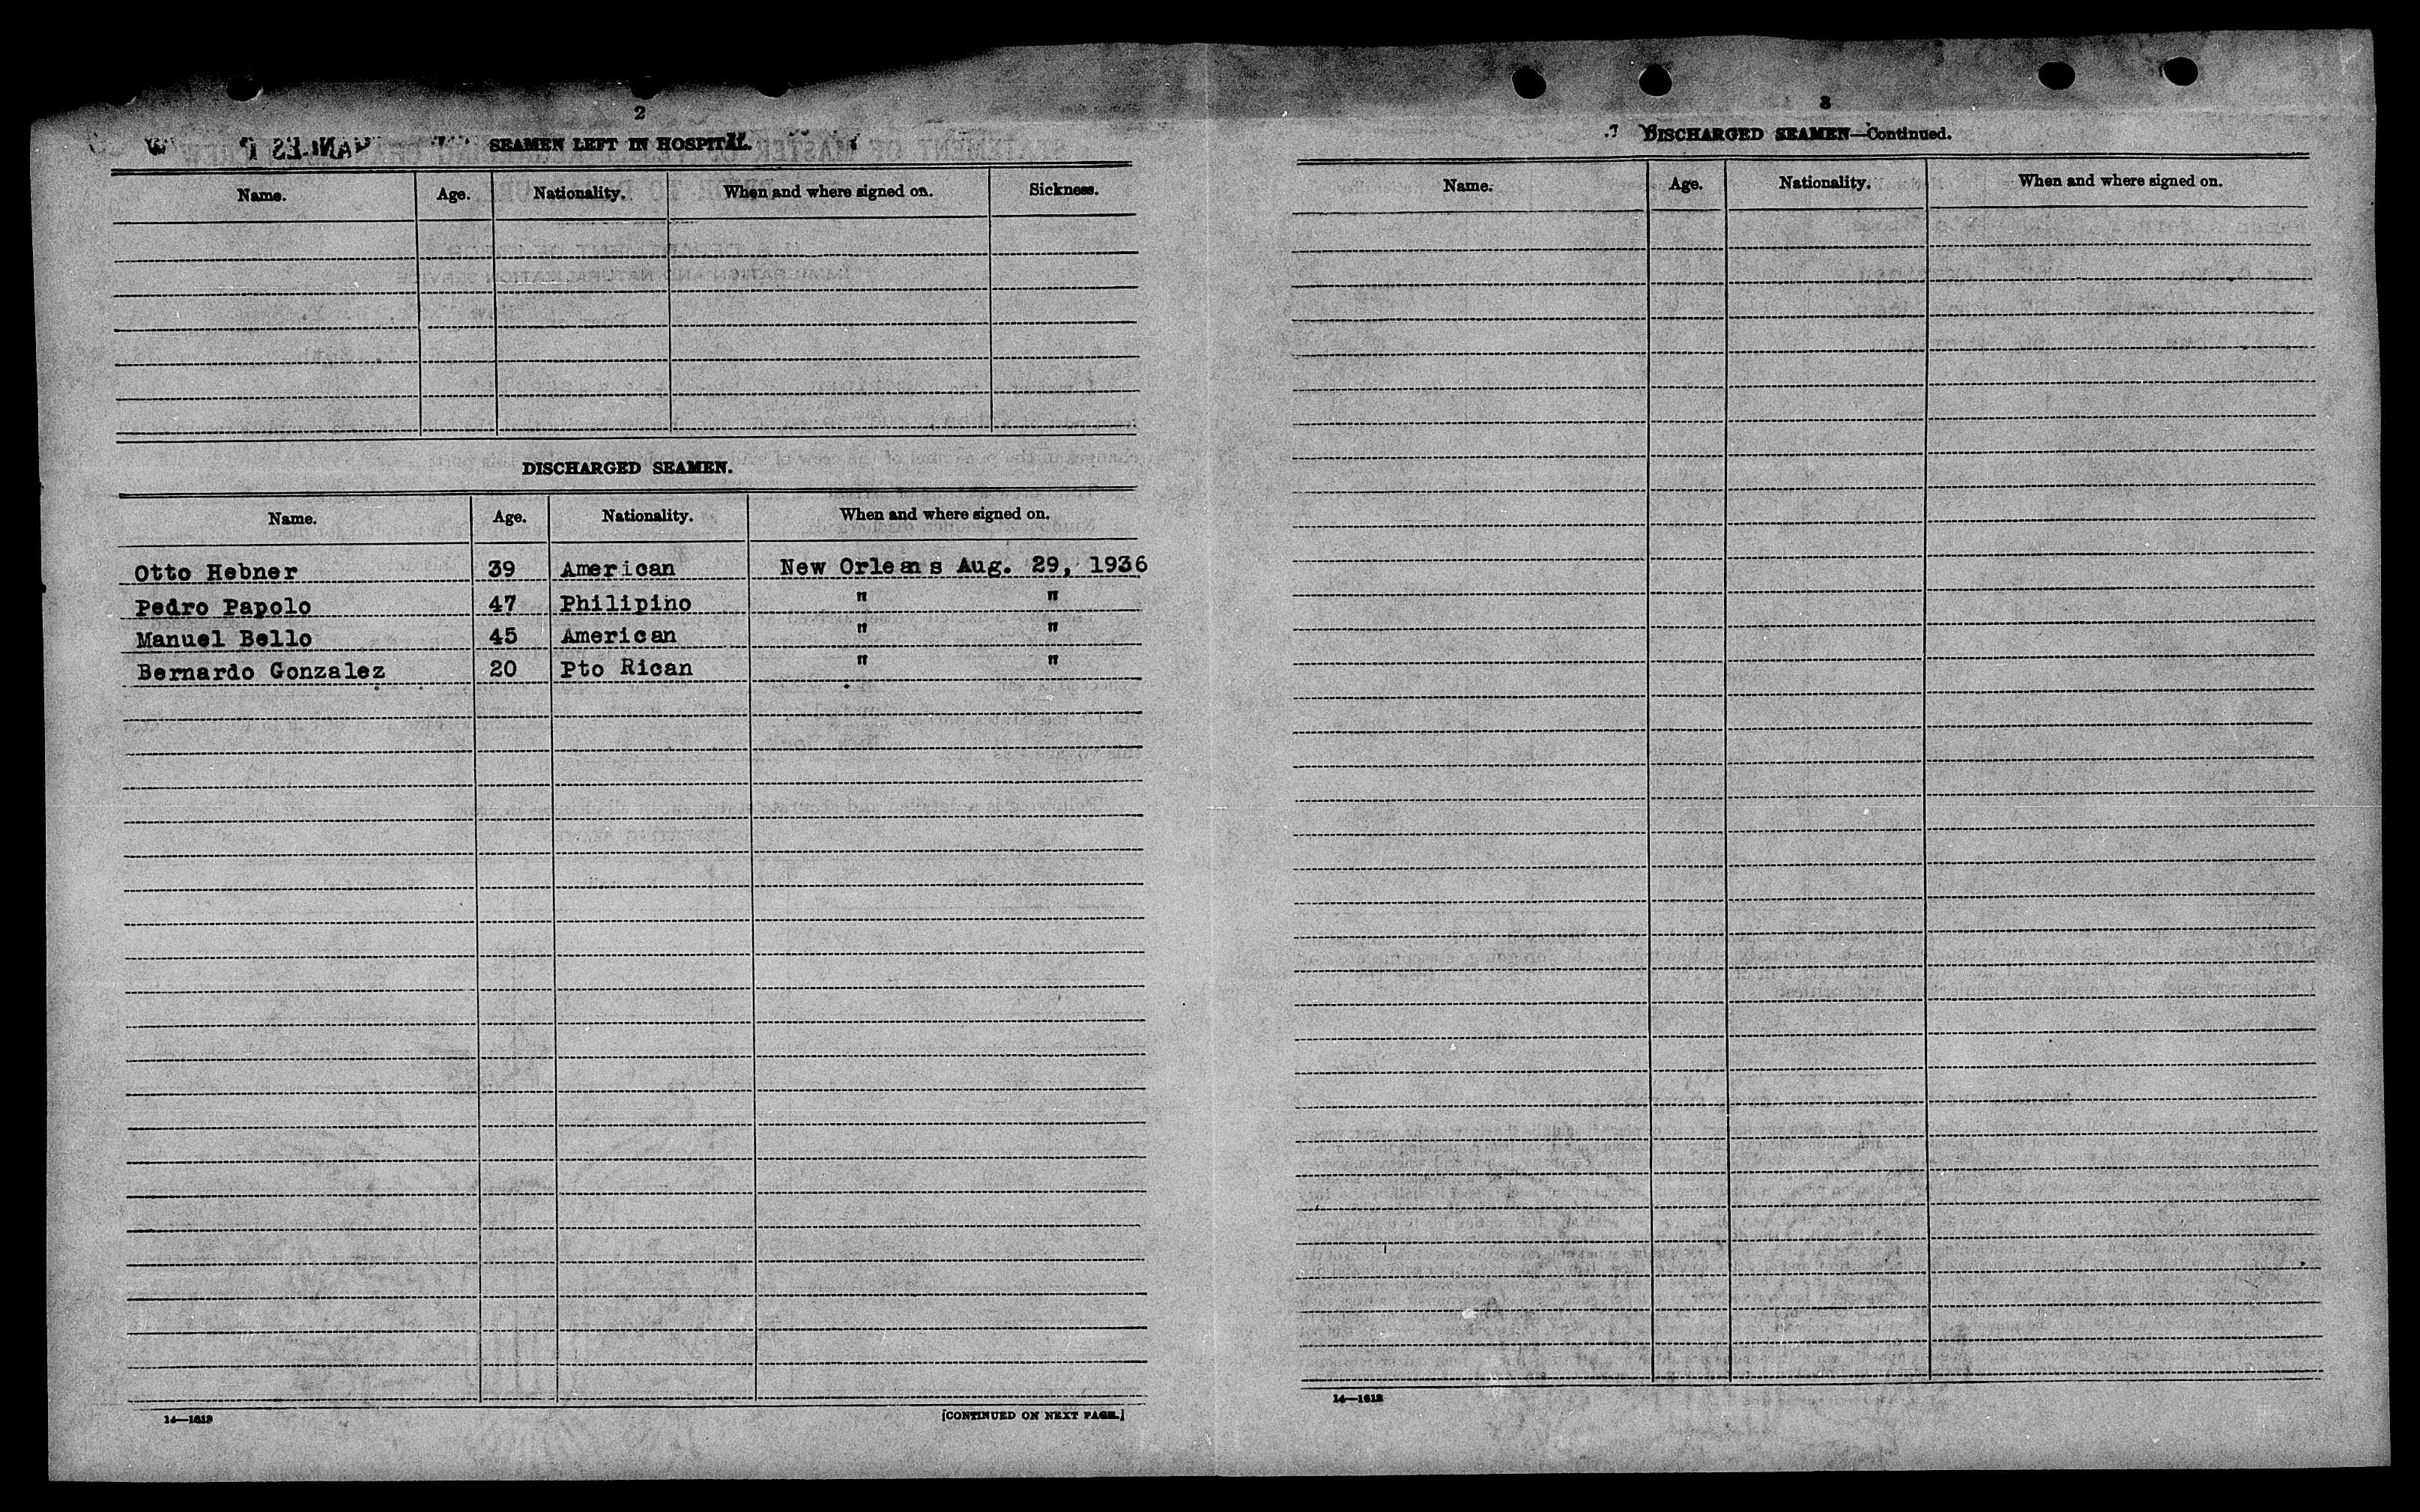 2
SEAMEN LEFT IN HOSPITAL.
Name. Age. Nationality. When and where signed on. Sickness.
DISCHARGED SEAMEN.
Name. Age. Nationality. When and where signed on.
Otto Hebner 39 American New Orleans Aug. 29, 1936
Pedro Papolo 47 Philipino " "
Manuel Bello 45 American " "
Bernardo Gonzalez 20 Pto Rican " "
14—1613
[CONTINUED ON NEXT PAGE.]
3
DISCHARGED SEAMEN—Continued.
Name. Age. Nationality. When and where signed on.
14—1613